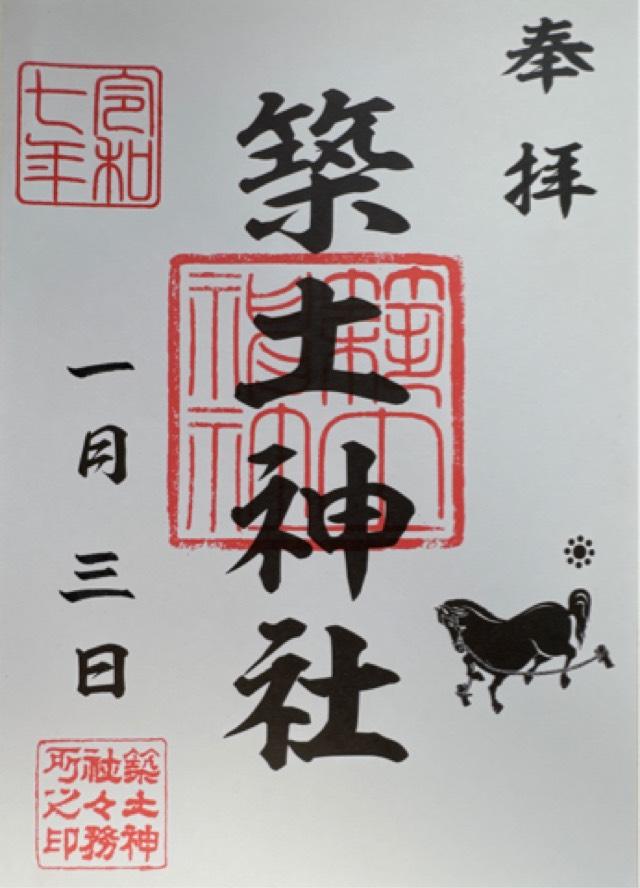 奉拝
築土神社
築土神社
令和七年
一月三日
築土神社々務所之印